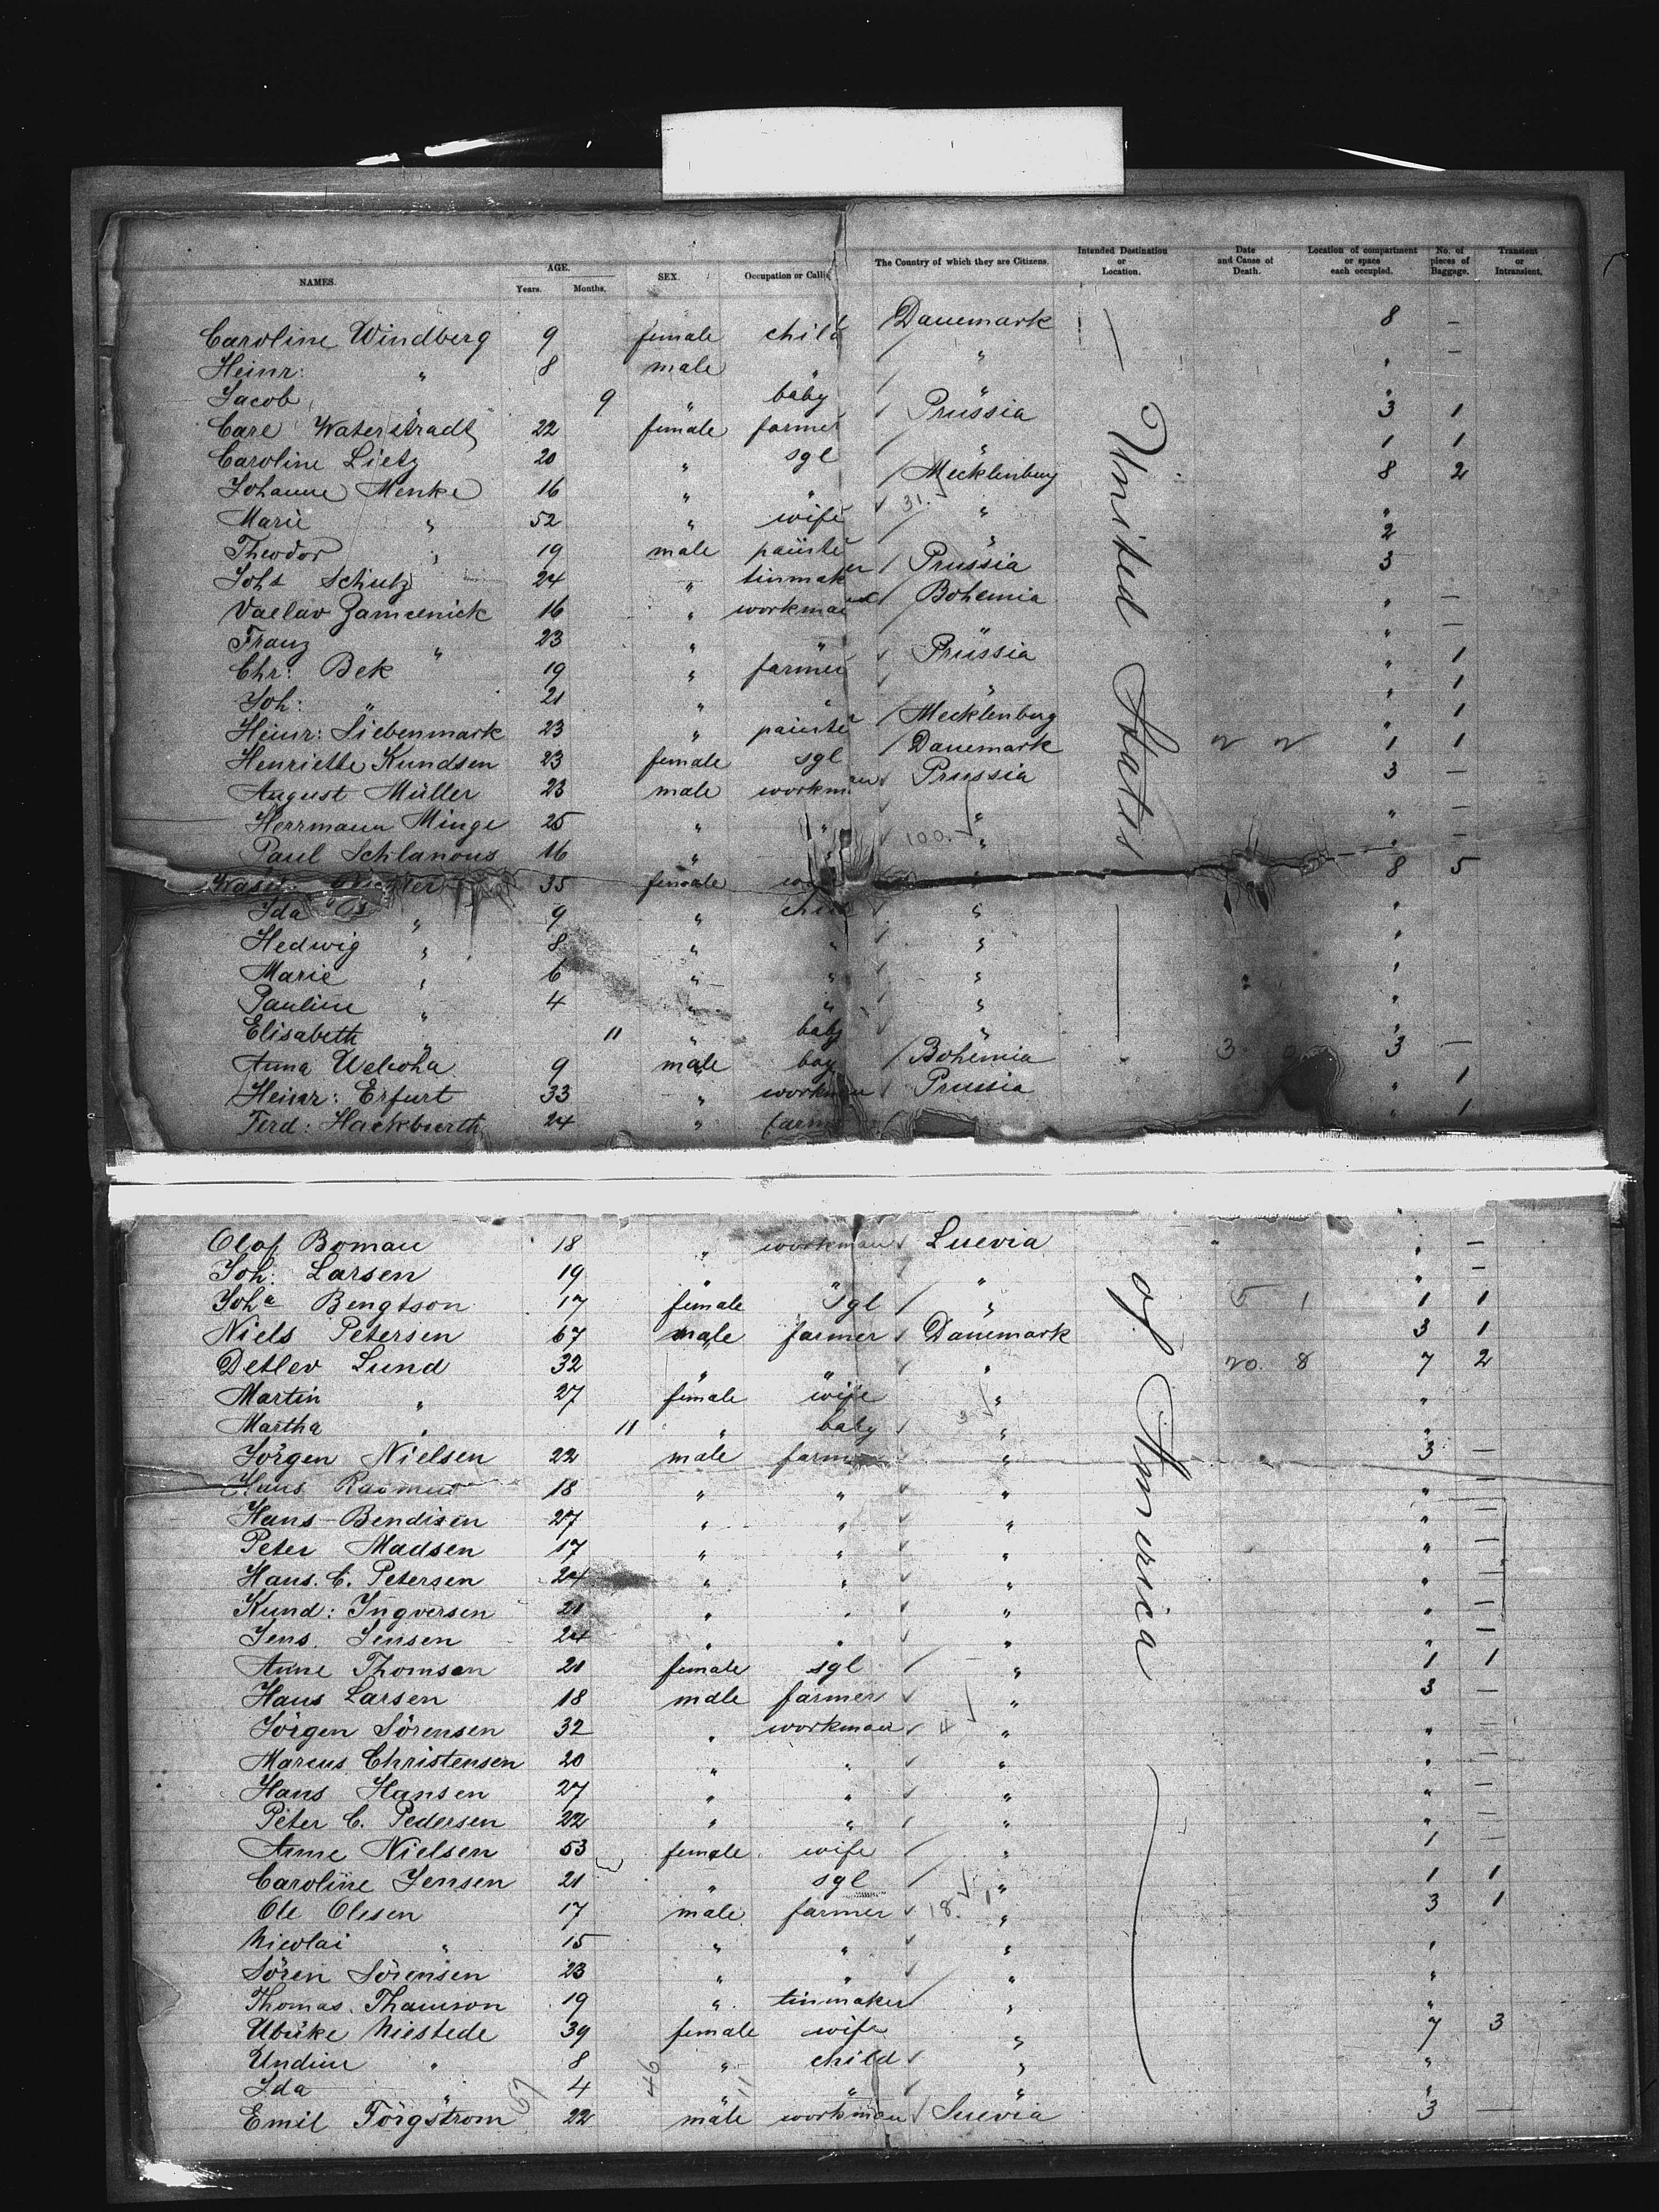 NAMES. AGE. Years. Months. SEX. Occupation or Calling The Country of which they are Citizens. Intended Destination or Location. Date and Cause of Death. Location of compartment or space each occupied. No. of pieces of Baggage. Transient or Intransient.
Caroline Windberg 9 female child Danemark 8 —
Heinr: " 8 male " " " —
Jacob " 9 " baby " "
Carl Waterstradt 22 female farmer Prussia 3 1
Caroline Lietz 20 " sgl " 1 1
Johanne Menke 16 " " Mecklenburg 8 2
Marie " 52 " wife 31. " "
Theodor " 19 male painter " 2
Johs Schutz 24 " tinmaker Prussia 3
Vaclav Zamcenick 16 " workman Bohemia " —
Franz " 23 " " " " —
Chr: Bek 19 " farmer Prussia " 1
Joh: " 21 " " " " 1
Heinr: Siebenmark 23 " painter Mecklenburg " 1
Henriette Kundsen 23 female sgl Danemark 1 1
August Müller 23 male workman Prussia 3 —
Herrmann Minge 25 " " " " —
Paul Schlanous 16 " 100. " " —
35 female 8 5
Ida " 9 " child " "
Hedwig " 8 " " " "
Marie " 6 " " " "
Pauline " 4 " " " "
Elisabeth " 11 " baby " "
Anna 9 male boy Bohemia 3 3 —
Heinr: Erfurt 33 " workman Prussia " 1
Ferd: Hackbarth 24 " farm " 1
United States of America
Olaf Boman 18 " workman Suevia " —
Joh: Larsen 19 " " " " —
Joha Bengtson 17 female sgl " 5 1 1 1
Niels Petersen 67 male farmer Danemark 3 1
Detlev Lund 32 " " " 20. 8 7 2
Martin " 27 female wife " "
Martha " 11 " baby 3 " "
Jörgen Nielsen 22 male farm " 3 —
Hans Rasmus 18 " " " " —
Hans Bendisen 27 " " " " —
Peter Madsen 17 " " " " —
Hans. C. Petersen 24 " " " " —
Kund: Ingversen 21 " " " " —
Jens. Jensen 24 " " " " —
Anne Thomsen 21 female sgl " 1 1
Hans Larsen 18 male farmer " 3 —
Jörgen Sörensen 32 " workman 4 " " —
Marcus Christensen 20 " " " " —
Hans Hansen 27 " " " " —
Peter C. Pedersen 22 " " " " —
Anne Nielsen 53 female wife " 1 —
Caroline Jensen 21 " sgl " 1 1
Ole Olesen 17 male farmer 18. " 3 1
Nicolai " 15 " " " "
Sören Sörensen 23 " " " "
Thomas. Thamson 19 " tinmaker " "
Ubüke Niestede 39 female wife " 7 3
Undine " 8 " child " "
Ida " 4 " " " "
Emil Törgstrom 22 male workman Suevia 3 —
67 46 11